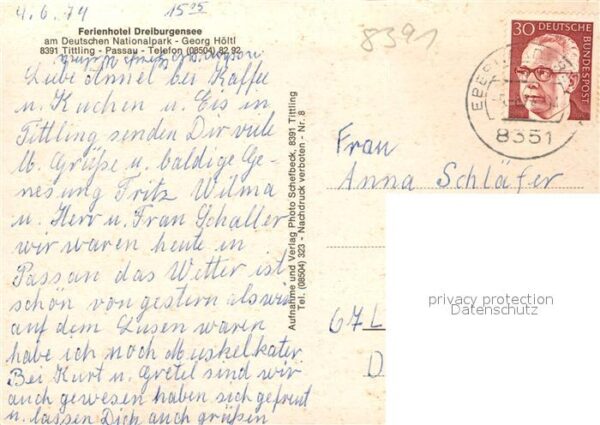 4.6.74 15⁰⁵
Ferienhotel Dreiburgensee
am Deutschen Nationalpark - Georg Höltl
8391 Tittling - Passau - Telefon (08504) 82 92
Liebe Annel bei Kaffe
u. Kuchen u. Eis in
Tittling senden Dir viele
lb. Grüße u. baldige Ge-
nesung Fritz Wilma
u. Herr u. Frau Schaller
wir waren heute in
Passau das Wetter ist
schön von gestern als wir
auf dem Lusen waren
habe ich noch Muskelkater
Bei Kurt u. Gretel sind wir
auch gewesen haben sich gefreut
u. lassen Dich auch grüßen
Aufnahme und Verlag Photo Schefbeck, 8391 Tittling
Tel. (08504) 323 - Nachdruck verboten - Nr. 8
8391
30 DEUTSCHE BUNDESPOST
8351
Frau
Anna Schläfer
67 L
D
privacy protection
Datenschutz